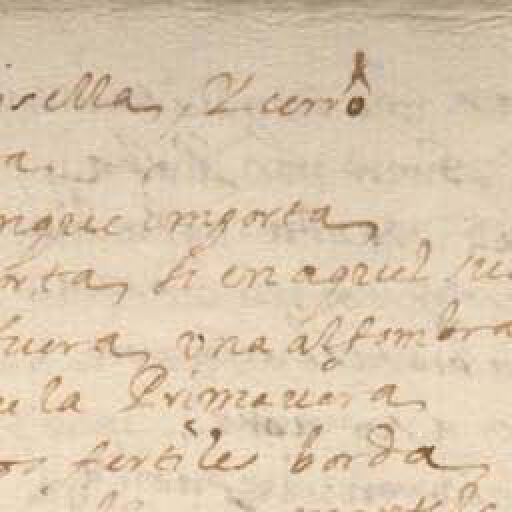 isella, Y cerro
a,
nque importa,
orta, si en aquel
fuera, vna alfombra
ue la Primauera,
os fertiles borda,